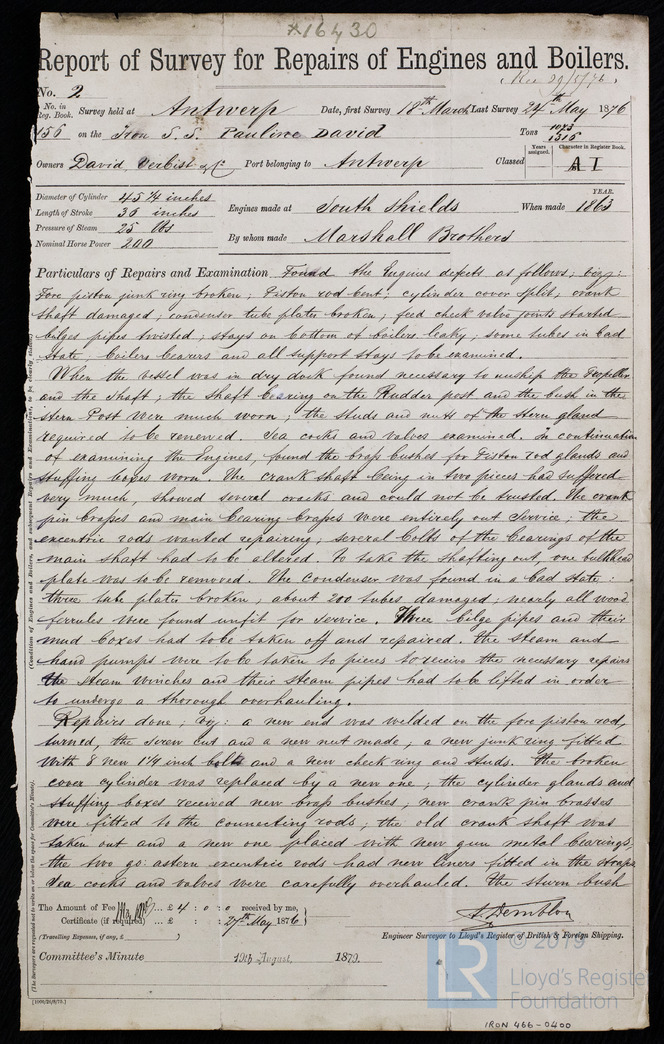 *16430
Report of Survey for Repairs of Engines and Boilers.
(Rec 29/5/76)
No. 2
No. in Reg. Book. Survey held at Antwerp Date, first Survey 18th March Last Survey 24th May 1876
156 on the Iron S.S. Pauline David Tons 1073 1316
Owners David Verbist & Co Port belonging to Antwerp Classed Years assigned. Character in Register Book. A I
Diameter of Cylinder 45 1/4 inches
Length of Stroke 36 inches
Pressure of Steam 25 lbs
Nominal Horse Power 200
Engines made at South Shields When made YEAR. 1863
By whom made Marshall Brothers
Particulars of Repairs and Examination Found the Engines defects as follows; viz:
Fore piston junk ring broken; Piston rod bent; cylinder cover split; crank
shaft damaged; condenser tube plates broken; feed check valve joints started
bilges pipes twisted; stays on bottom of boilers leaky; some tubes in bad
state; boilers bearers and all support stays to be examined.
When the vessel was in dry dock found necessary to unship the Propeller
and the shaft; the shaft bearing on the Rudder post and the bush in the
stern Post were much worn; the studs and nuts of the stern gland
required to be renewed. Sea cocks and valves examined. In continuation
of examining the Engines, found the brass bushes for Piston rod glands and
stuffing boxes worn. The crank shaft being in two pieces had suffered
very much, showed several cracks and could not be trusted. The crank
pin brasses and main bearing brasses were entirely out service; the
excentric rods wanted repairing; several bolts of the bearings of the
main shaft had to be altered. To take the shafting out one bulkhead
plate was to be removed. The condenser was found in a bad state:
three tube plates broken; about 200 tubes damaged; nearly all wood
ferrules were found unfit for service. Three bilge pipes and their
mud boxes had to be taken off and repaired. The steam and
hand pumps were to be taken to pieces to receive the necessary repairs
the steam winches and their steam pipes had to be lifted in order
to undergo a thorough overhauling.
Repairs done; viz: a new end was welded on the fore piston rod,
turned, the screw cut and a new nut made; a new junk ring fitted
with 8 new 1 1/4 inch bolts and a new check ring and studs. The broken
cover cylinder was replaced by a new one; the cylinder glands and
stuffing boxes received new brass bushes; new crank pin brasses
were fitted to the connecting rods; the old crank shaft was
taken out and a new one placed with new gun metal bearings;
the two go: astern excentric rods had new liners fitted in the straps
Sea cocks and valves were carefully overhauled. The stern bush
The Amount of Fee ... £ 4 : 0 : 0 received by me,
Certificate (if required) ... £ : : 27th May 1876
(Travelling Expenses, if any, £ )
A. Demblon
Engineer Surveyor to Lloyd's Register of British & Foreign Shipping.
Committee's Minute 19th August, 1879.
[1000/26/8/75.]
(Condition of Engines and Boilers, and subsequent Repairs and Examinations, to be clearly stated.)
(The Surveyors are requested not to write on or below the space for Committee's Minute.)
© 2019
LR
Lloyd's Register
Foundation
IRON 466-0400